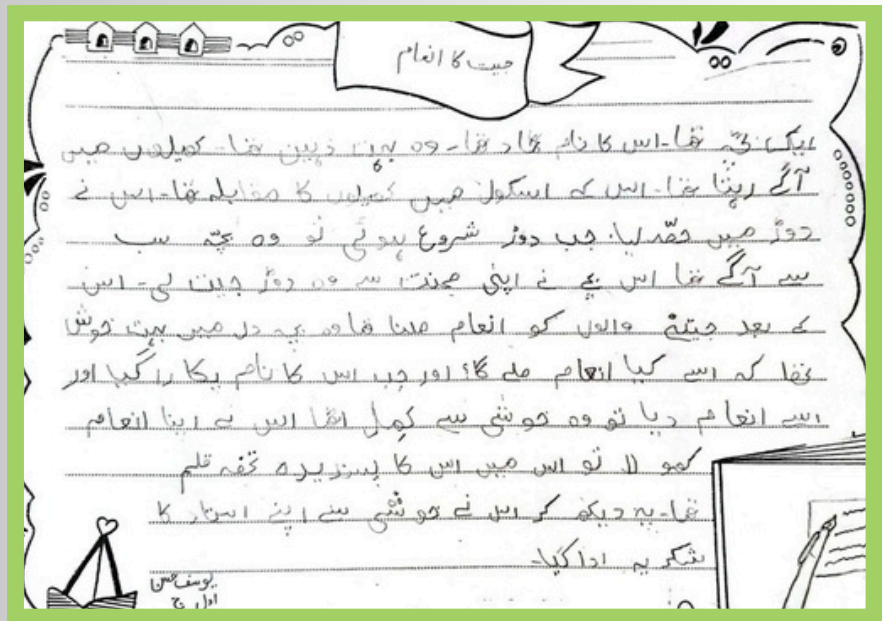 جیت کا انعام
ایک بچہ تھا۔ اس کا نام حماد تھا۔ وہ بہت ذہین تھا۔ کھیلوں میں
آگے رہتا تھا۔ اس کے اسکول میں کھیلوں کا مقابلہ تھا۔ اس نے
دوڑ میں حصّہ لیا۔ جب دوڑ شروع ہوئی تو وہ بچّہ سب
سے آگے تھا اس بچے نے اپنی محنت سے وہ دوڑ جیت لی۔ اس
کے بعد جیتنے والوں کو انعام ملنا تھا وہ بچہ دل میں بہت خوش
تھا کہ اسے کیا انعام ملے گا؟ اور جب اس کا نام پکارا گیا اور
اسے انعام دیا تو وہ خوشی سے کھل اٹھا اس نے اپنا انعام
کھولا تو اس میں اس کا پسندیدہ تحفہ قلم
تھا۔ یہ دیکھ کر اس نے خوشی سے اپنے استاد کا
شکریہ ادا کیا۔
یوسف حسن
اول ج